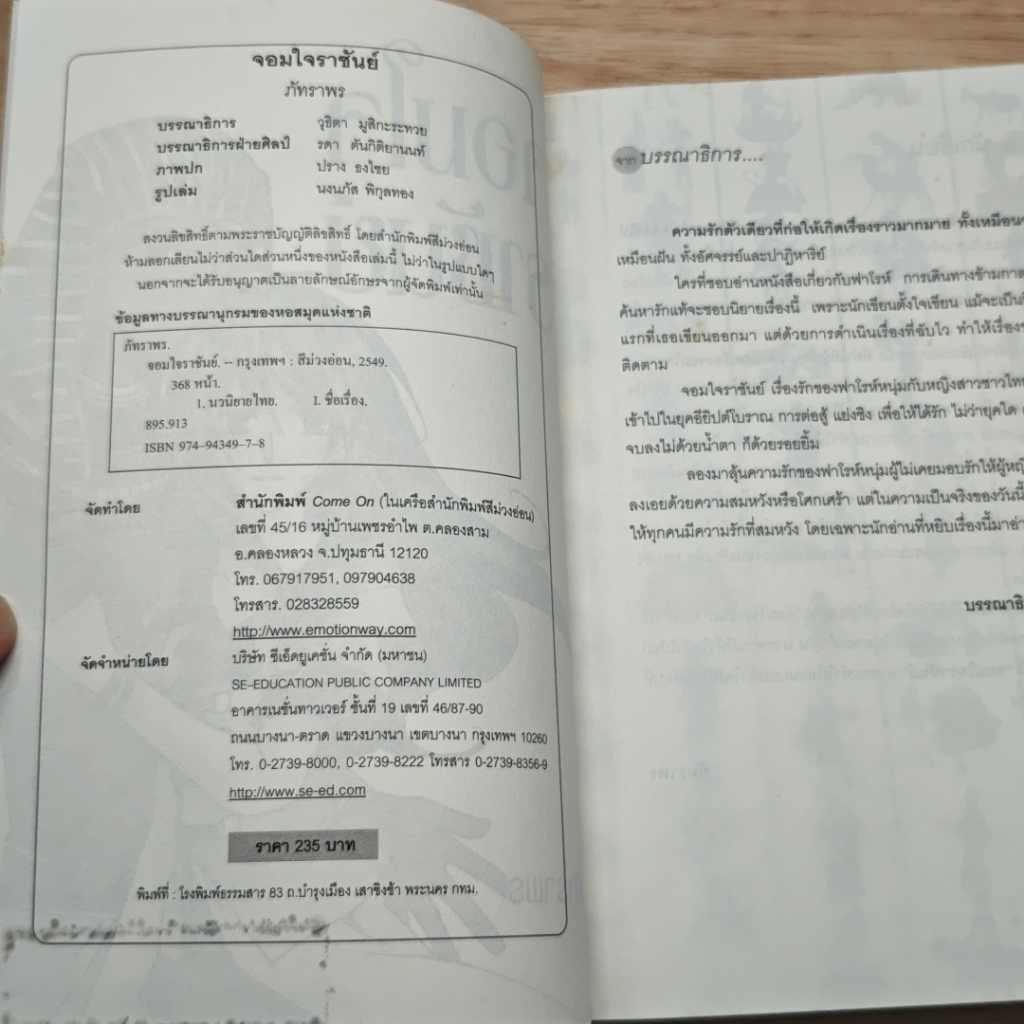 จอมใจราชันย์
ภัทราพร
บรรณาธิการ วุธิตา มูสิกะระทวย
บรรณาธิการฝ่ายศิลป์ รดา ตันกิติยานนท์
ภาพปก ปราง ธงไชย
รูปเล่ม นงนภัส พิกุลทอง
สงวนลิขสิทธิ์ตามพระราชบัญญัติลิขสิทธิ์ โดยสำนักพิมพ์สีม่วงอ่อน
ห้ามลอกเลียนไม่ว่าส่วนใดส่วนหนึ่งของหนังสือเล่มนี้ ไม่ว่าในรูปแบบใดๆ
นอกจากจะได้รับอนุญาตเป็นลายลักษณ์อักษรจากผู้จัดพิมพ์เท่านั้น
ข้อมูลทางบรรณานุกรมของหอสมุดแห่งชาติ
ภัทราพร.
จอมใจราชันย์. -- กรุงเทพฯ : สีม่วงอ่อน, 2549.
368 หน้า.
1. นวนิยายไทย. I. ชื่อเรื่อง.
895.913
ISBN 974-94349-7-8
จัดทำโดย สำนักพิมพ์ Come On (ในเครือสำนักพิมพ์สีม่วงอ่อน)
เลขที่ 45/16 หมู่บ้านเพชรอำไพ ต.คลองสาม
อ.คลองหลวง จ.ปทุมธานี 12120
โทร. 067917951, 097904638
โทรสาร. 028328559
http://www.emotionway.com
จัดจำหน่ายโดย บริษัท ซีเอ็ดยูเคชั่น จำกัด (มหาชน)
SE-EDUCATION PUBLIC COMPANY LIMITED
อาคารเนชั่นทาวเวอร์ ชั้นที่ 19 เลขที่ 46/87-90
ถนนบางนา-ตราด แขวงบางนา เขตบางนา กรุงเทพฯ 10260
โทร. 0-2739-8000, 0-2739-8222 โทรสาร 0-2739-8356-9
http://www.se-ed.com
ราคา 235 บาท
พิมพ์ที่ : โรงพิมพ์ธรรมสาร 83 ถ.บำรุงเมือง เสาชิงช้า พระนคร กทม.
จาก บรรณาธิการ....
ความรักตัวเดียวที่ก่อให้เกิดเรื่องราวมากมาย ทั้งเหมือน
เหมือนฝัน ทั้งอัศจรรย์และปาฏิหาริย์
ใครที่ชอบอ่านหนังสือเกี่ยวกับฟาโรห์ การเดินทางข้ามกาล
ค้นหารักแท้จะชอบนิยายเรื่องนี้ เพราะนักเขียนตั้งใจเขียน แม้จะเป็น
แรกที่เธอเขียนออกมา แต่ด้วยการดำเนินเรื่องที่ฉับไว ทำให้เรื่อง
ติดตาม
จอมใจราชันย์ เรื่องรักของฟาโรห์หนุ่มกับหญิงสาวชาวไทย
เข้าไปในยุคอียิปต์โบราณ การต่อสู้ แย่งชิง เพื่อให้ได้รัก ไม่ว่ายุคใด
จบลงไม่ด้วยน้ำตา ก็ด้วยรอยยิ้ม
ลองมาลุ้นความรักของฟาโรห์หนุ่มผู้ไม่เคยมอบรักให้ผู้หญิ
ลงเอยด้วยความสมหวังหรือโศกเศร้า แต่ในความเป็นจริงของวันนี้
ให้ทุกคนมีความรักที่สมหวัง โดยเฉพาะนักอ่านที่หยิบเรื่องนี้มาอ่า
บรรณาธิ